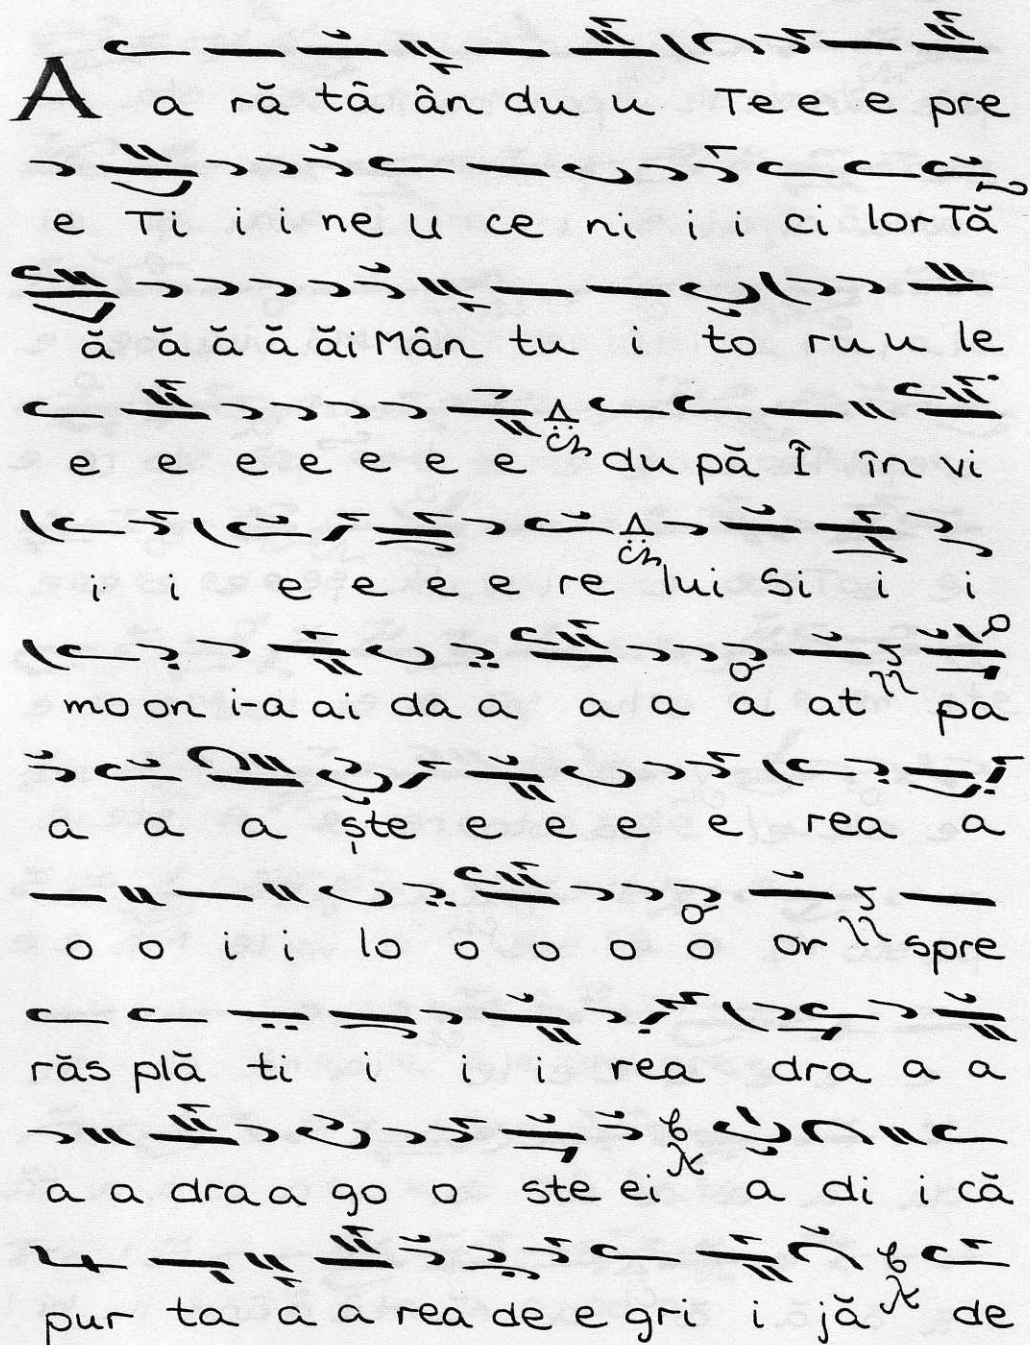 A a ră tâ ân du u Te e e pre
e Ti i i ne u ce ni i i ci lor Tă
ă ă ă ă ăi Mân tu i to ru u le
e e e e e e e du pă Î în vi
i i e e e e re lui Si i i
mo on i-a ai da a a a a at pa
a a a ște e e e e rea a
o o i i lo o o o o or spre
răs plă ti i i i rea dra a a
a a dra a go o ste ei a di i că
pur ta a a rea de e gri i jă de